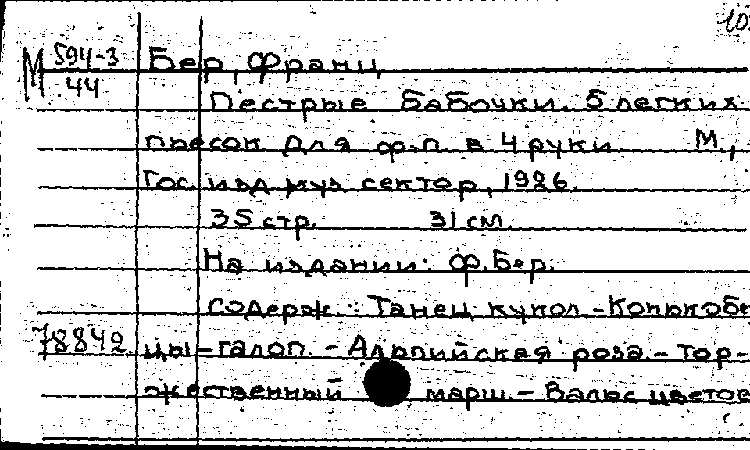 10
М 594-3
44
Бер, Франц
Пестрые бабочки. 5 легких
пьесок для ф.п. в 4 руки М.,
Гос. изд. муз. сектор, 1926.
35 стр. 31 см.
На издании: Ф. Бер.
Содерж.: Танец кукол – Конькобе
78842 цы – галоп. – Альпийская роза – Тор-
жественный марш. – Вальс цветов